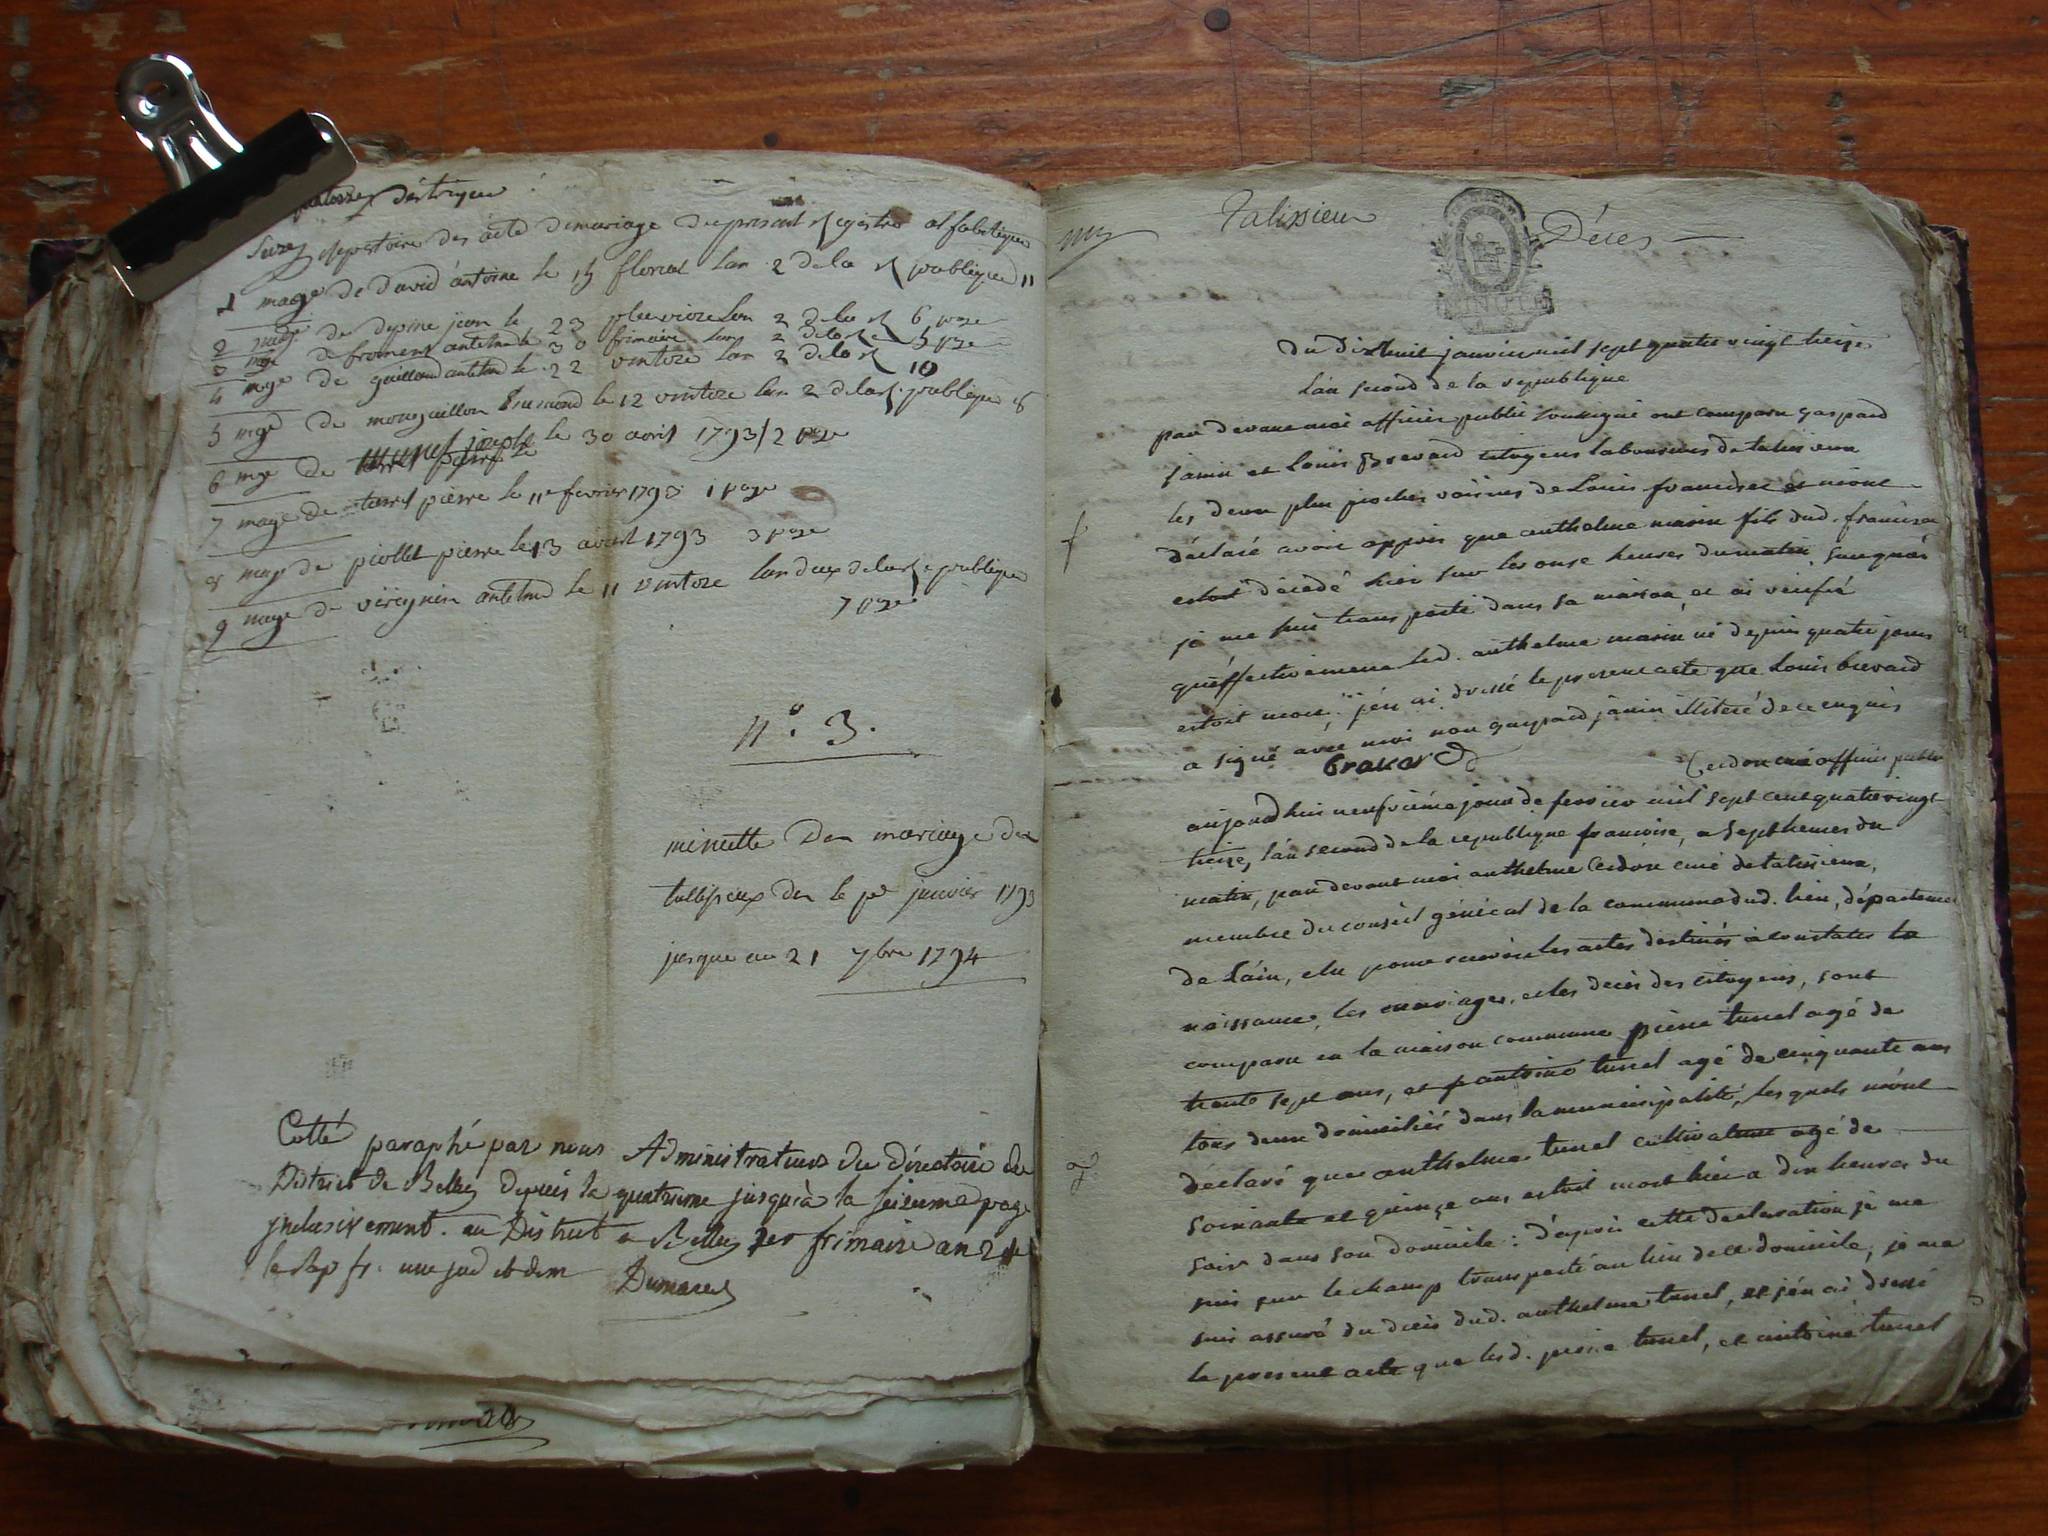 Suzey Repertoire des acte demariage dupresent Registre alfabetique
1 mage de david antoine le 15 floreal lan 2 dela Republique 11
2 mage de depine jean le 23 pluvioze lan 2 dela R 6 page
3 mge de froment antelme le 30 frimaire lan 2 dela Re 5 page
4 mge de guilland antelme le 22 ventoze lan 2 dela R 10
5 mge de monguillon le 12 ventoze lan 2 dela Republique 8
6 mge de joseph le 30 avril 1793 / 2 page
7 mage de pierre le 11e fevrier 1793 1 page
8 mage de piollet pierre le 13 avril 1793 3 page
9 mage de antelme le 11 ventoze lan deux dela Republique
7 page
n.º 3.
minutte Des mariage de
tallissieux Des le pr janvier 1793
jusque au 21 7bre 1794
Cotté paraphé par nous Administrateurs du directoire du
District de Belley depuis la quatrieme jusqu'à la seizieme page
inclusivement. au District a Belley 1er frimaire an 2 de
la Rep fr. une ind et dem Dumarest
Talissieu Décès
MINUTE
du dixhuit janvier mil sept quatre vingt treize
l'an second de la republique
par devant moi officier public soussigné ont comparu gaspard
janin et Louis Brevard citoyens laboureurs de talissieux
les deux plus proches voisins de Louis francisee et m'ont
déclaré avoir appris que anthelme marin fils dud. francisee
estoit décédé hier sur les onze heures du matin, surquoi
je me suis transporté dans sa maison, et ai vérifié
qu'effectivement led. anthelme marin né depuis quatre jours
estoit mort, j'en ai dressé le present acte que Louis brevard
a signé avec moi non gaspard janin illiteré de ce enquis
Bravard
Cerdon curé officier public
aujourdhui neufvième jour de fevrier mil sept cent quatre vingt
treize, l'an second de la republique francoise, a sept heures du
matin, par devant moi anthelme Cerdon curé de talissieux,
membre du conseil général de la commune dud. lieu, département
de l'ain, elu pour recevoir les actes destinés à constater la
naissance, les mariages, et les decès des citoyens, sont
comparu en la maison commune pierre tunel agé de
trente sept ans, et antoine tunel agé de cinquante ans
tous deux domiciliés dans la municipalité, lesquels m'ont
déclaré que anthelme tunel cultivateur agé de
soixante et quinze ans estoit mort hier a dix heures du
soir dans son domicile : d'après cette declaration je me
suis sur le champ transporté au lieu de ce domicile, je me
suis assuré du decès dud. anthelme tunel, et j'en ai dressé
le present acte que lesd. pierre tunel, et antoine tunel